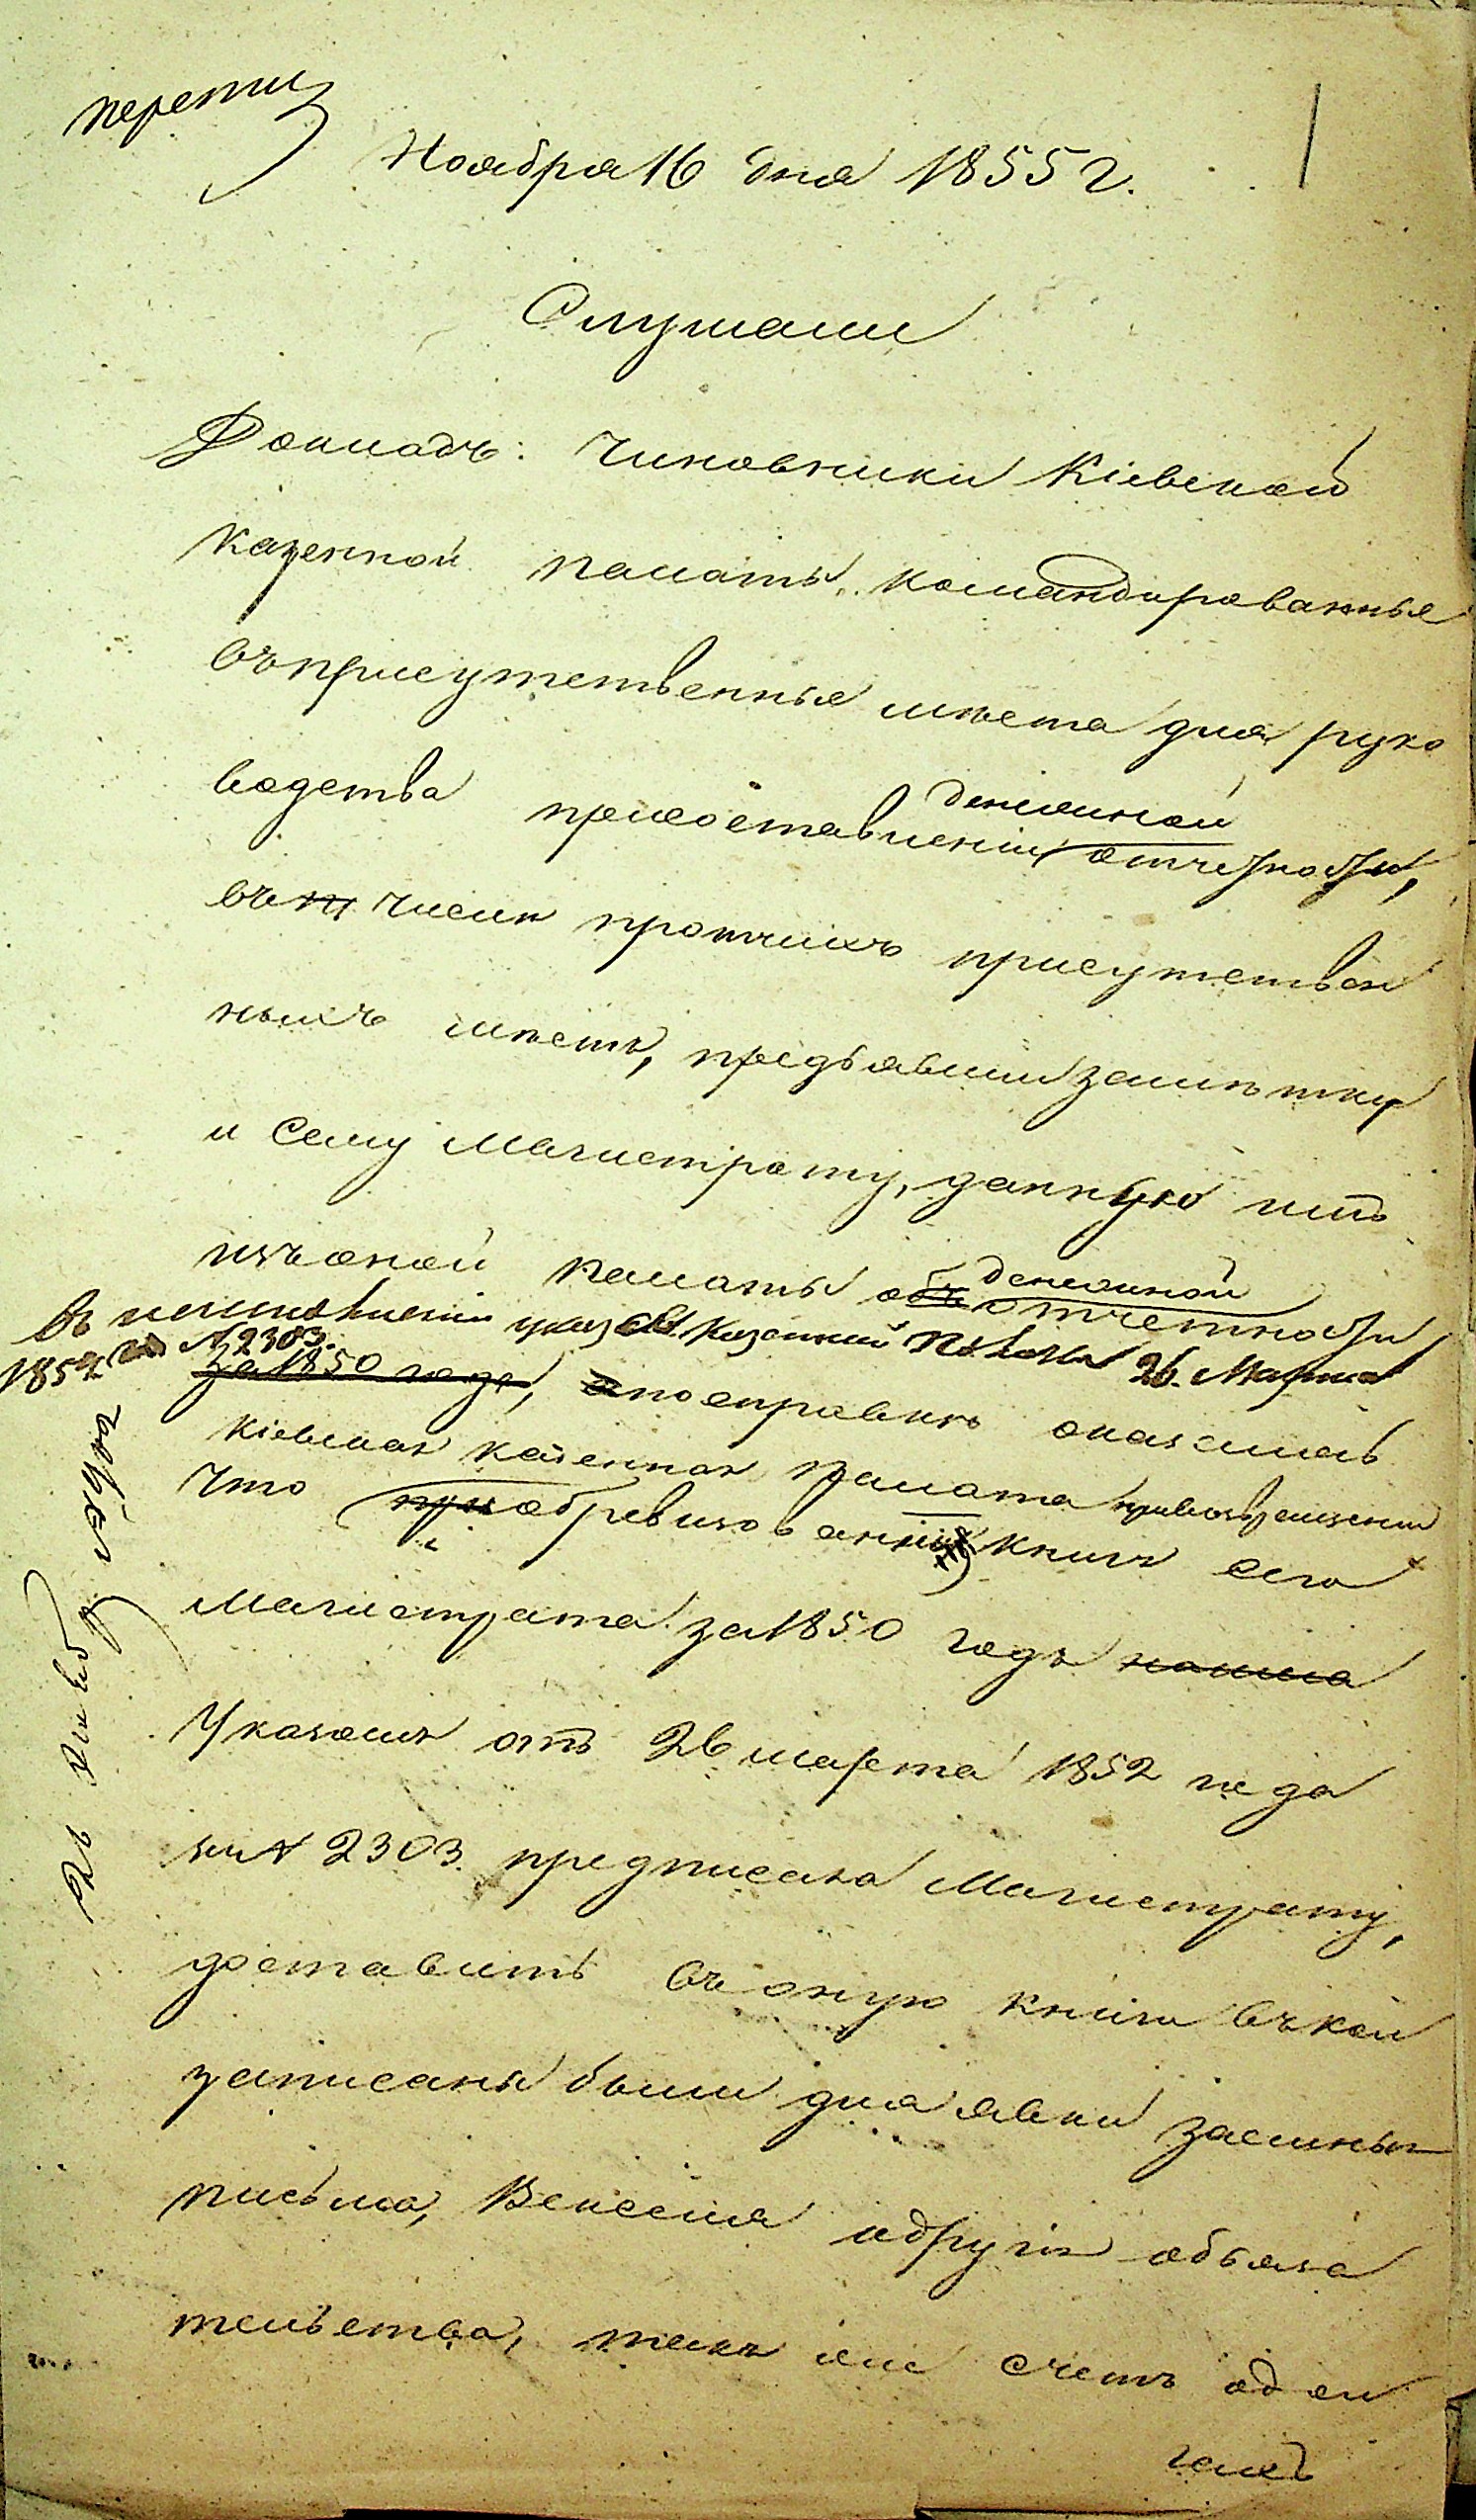 Ноября 16 дня 1855 г.
Слушали
Докладъ: Чиновники Кіевской
казенной палаты командированные
въ присутственные мѣста для руко
водства при составленіи денежной отчетности,
въ числѣ протчихъ присутствен
ныхъ мѣстъ, предъявили замѣтку
и сему Магистрату, данную имъ
изъ оной палаты объ денежной отчетности
въ исполненіи указа Казенной Палаты 26. Марта
1852 го №2303.
за 1850 года, а по справкѣ оказалось
Кіевская казенная палата при возвращеніи
что при обревизованныхъ книгъ сего
Магистрата за 1850 годъ
Указомъ отъ 26 марта 1852 года
за № 2303. предписала Магистрату,
доставить въ оную книги въ кои
записаны были для явки заемные
письма, Векселя и другія обяза
тельства, такъ же счетъ о день
гахъ